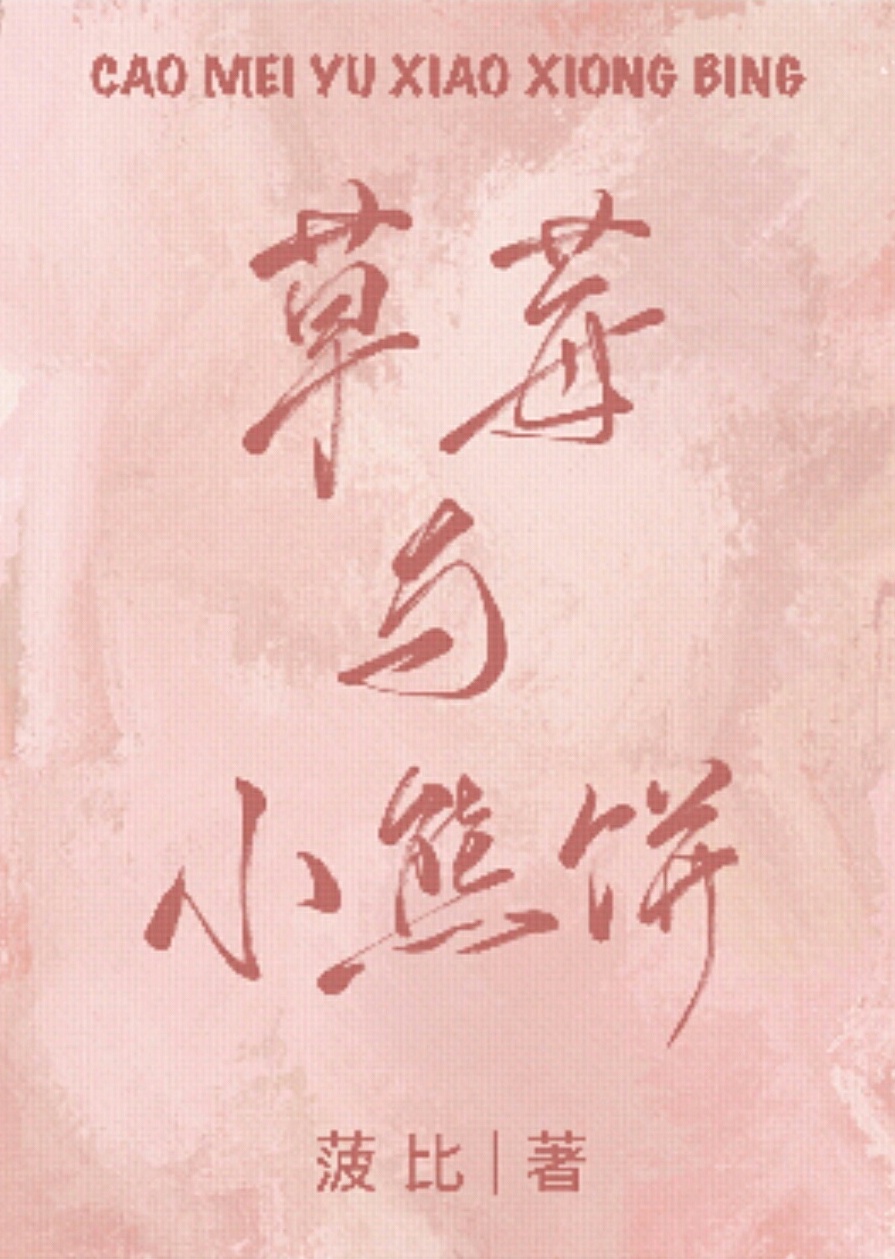 CAO MEI YU XIAO XIONG BING
草莓
与
小熊饼
菠比|著